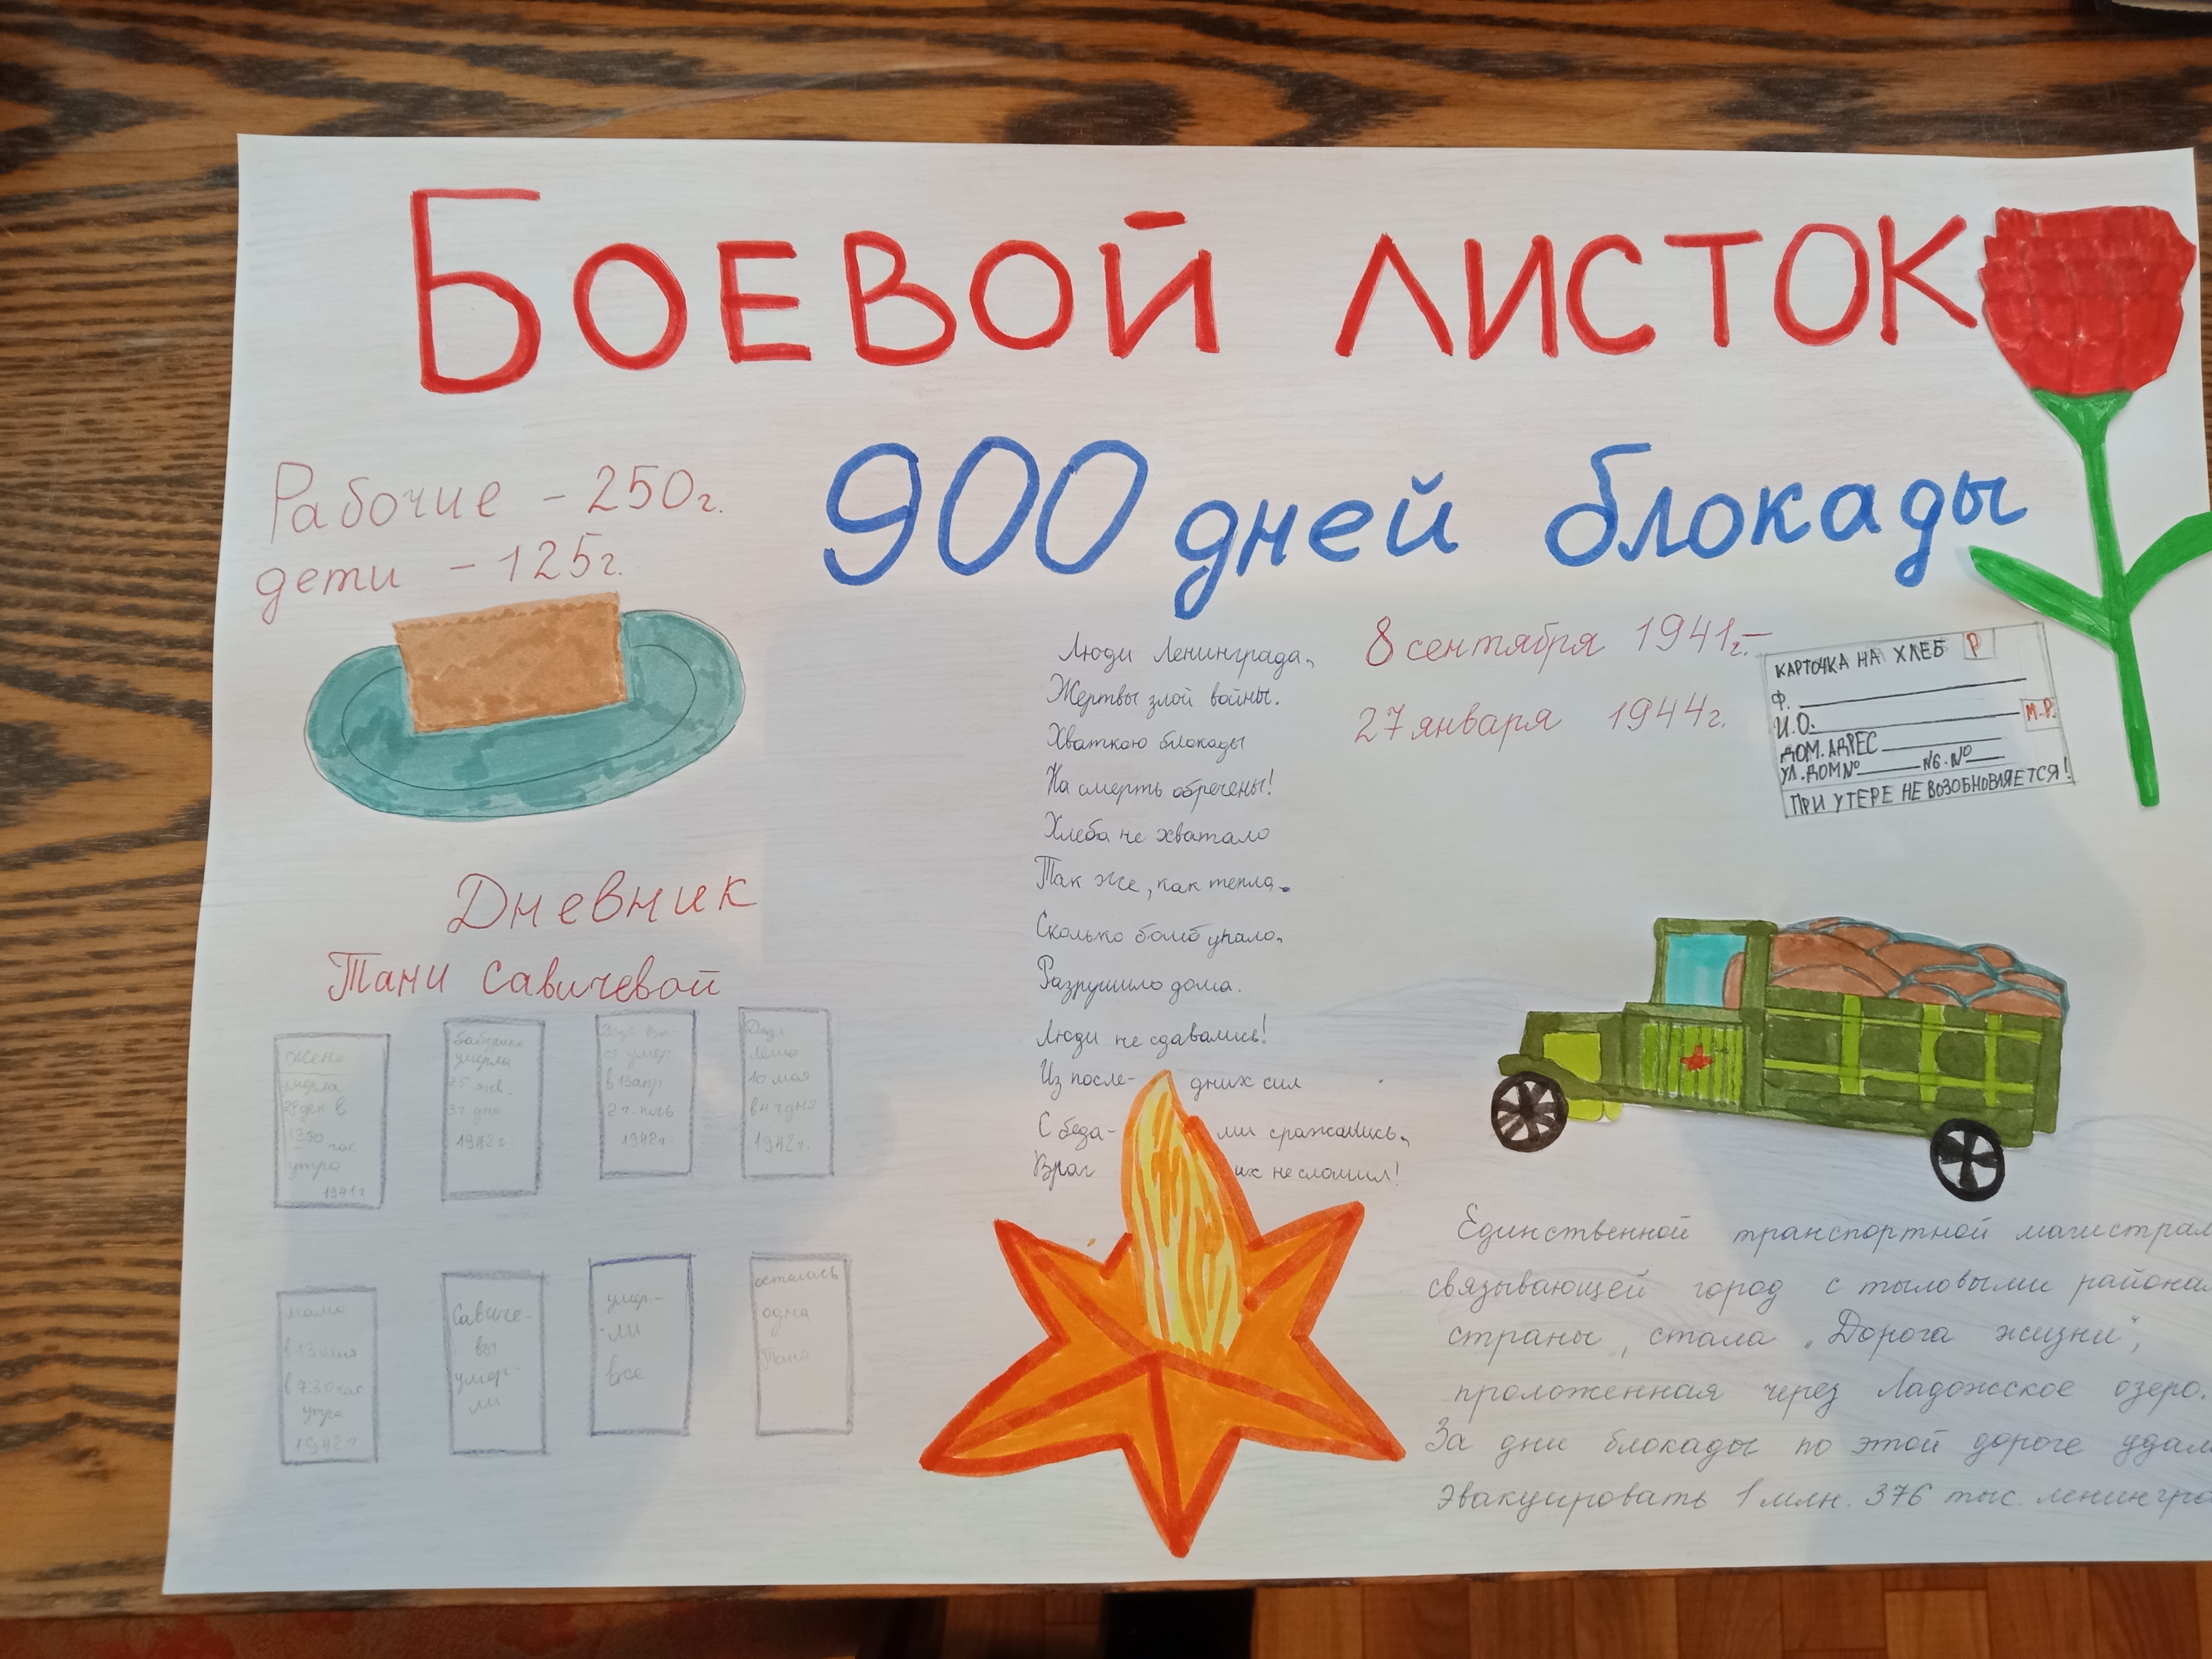 БОЕВОЙ ЛИСТОК
900 дней блокады
Рабочие - 250г.
дети - 125г.
8 сентября 1941г. -
27 января 1944г.
КАРТОЧКА НА ХЛЕБ Р
Ф.
И.О. М.Р.
ДОМ. АДРЕС
УЛ. ДОМ № №
ПРИ УТЕРЕ НЕ ВОЗОБНОВЛЯЕТСЯ!
Люди Ленинграда,
Жертвы злой войны.
Хваткою блокады
На смерть обречены!
Хлеба не хватало
Так же, как тепла.
Сколько бомб упало,
Разрушило дома.
Люди не сдавались!
Из после- дних сил
С беда- ми сражались,
Враг их не сломил!
Дневник
Тани Савичевой
Женя
умерла
28 дек в
1230 час
утра
1941г
Бабушка
умерла
25 янв.
3ч дня
1942г.
Дядя Ва-
ся умер
в 13 апр
2ч. ночь
1942г.
Дядя
Леша
10 мая
в 4ч дня
1942г.
мама
в 13 мая
в 730 час
утра
1942г
Савиче-
вы
умер-
ли
умер-
-ли
все
осталась
одна
Таня
Единственной транспортной магистрал
связывающей город с тыловыми района
страны, стала „Дорога жизни",
проложенная через Ладожское озеро.
За дни блокады по этой дороге удал
эвакуировать 1 млн. 376 тыс. ленингра